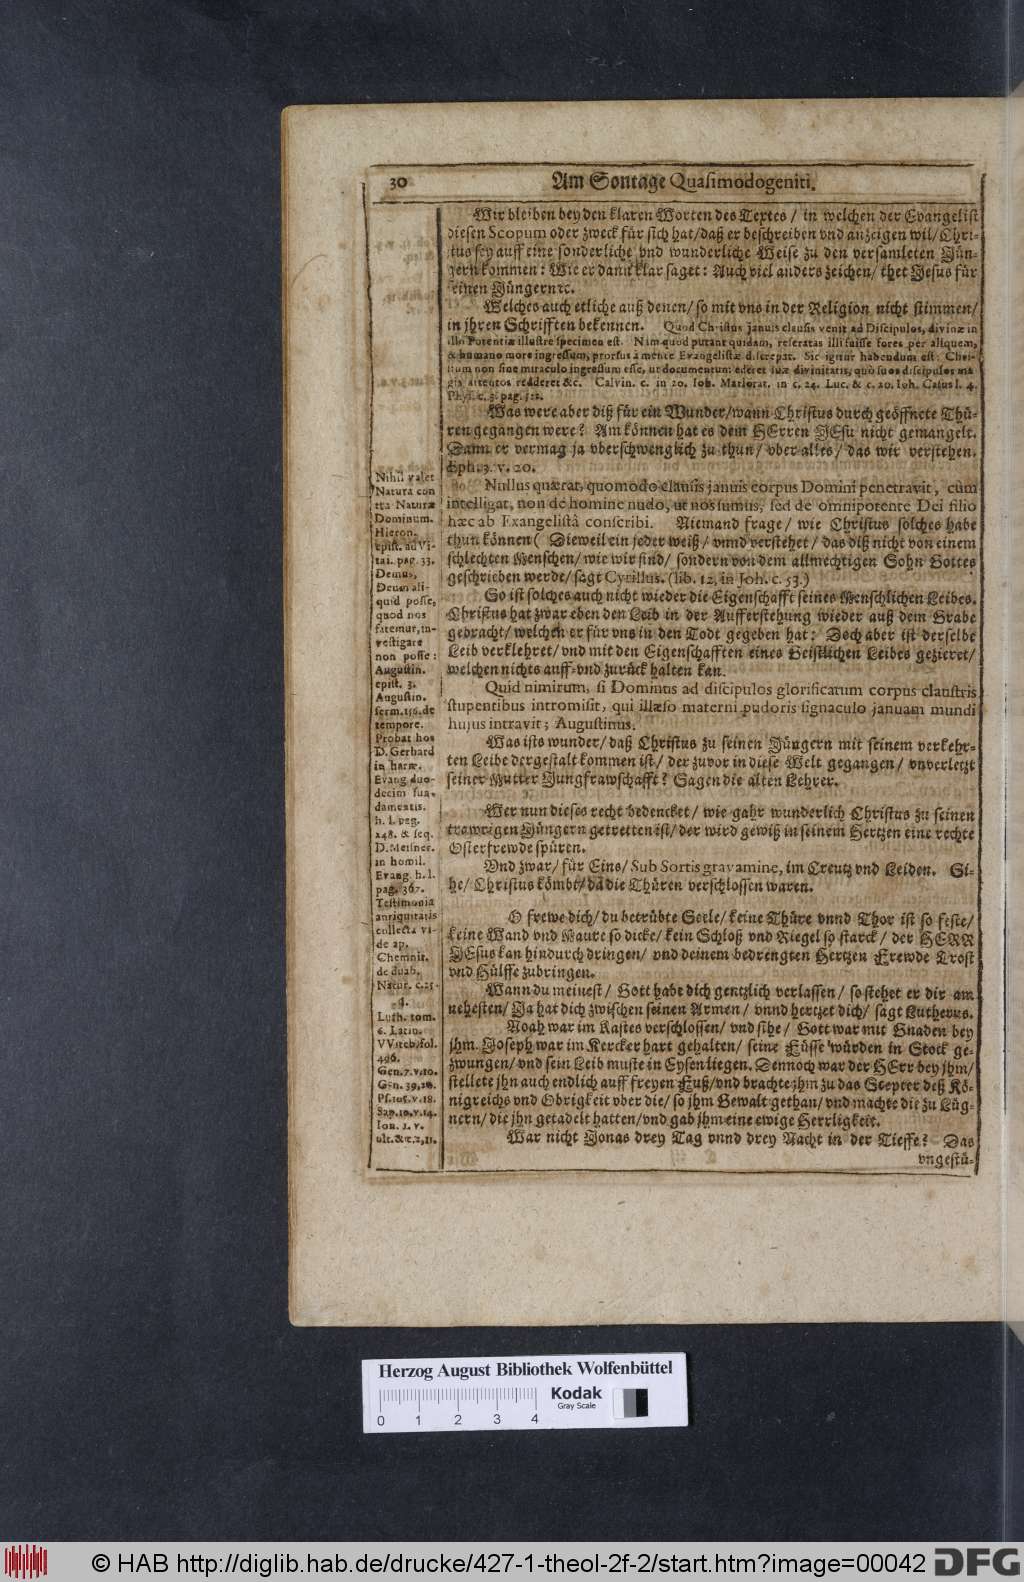 30
Am Sontage Quasimodogeniti.
Wir bleiben bey den klaren Worten des Textes / in welchen der Evangelist
diesen Scopum oder zweck für sich hat/ daß er beschreiben vnd anzeigen wil/ Chri-
stus sey auff eine sonderliche vnd wunderliche Weise zu den versamleten Jün-
gern kommen: Wie er dann klar saget: Auch viel anders zeichen/ thet Jesus für
seinen Jüngern ꝛc.
Welches auch etliche auß denen/ so mit vns in der Religion nicht stimmen/
in jhren Schrifften bekennen. Quod Christus januis clausis venit ad Discipulos, divinæ in
illo Potentiæ illustre specimen est. Nim quod putant quidam, reseratas illi fuisse fores per aliquem,
& humano more ingressum, prorsus à mente Evangelistæ discrepat. Sic igitur habendum est: Chri-
stum non sine miraculo ingressum esse, ut documentum ederet suæ divinitatis, quò suos discipulos ma
gis attentos redderet &c. Calvin. c. in 20. Joh. Marlorat. in c. 24. Luc. & c. 20. Joh. Casus l. 4.
Phys. c. 3. pag.
Was were aber diß für ein Wunder/ wann Christus durch geöffnete Thü-
ren gegangen were? Am können hat es dem HErren JEsu nicht gemangelt.
Dann er vermag ja vberschwenglich zu thun/ vber alles/ das wir verstehen.
Eph. 3. v. 20.
Nullus quærat, quomodo clausis januis corpus Domini penetravit, cùm
intelligat, non de homine nudo, ut nos sumus, sed de omnipotente Dei filio
hæc ab Evangelistâ conscribi. Niemand frage/ wie Christus solches habe
thun können ( Dieweil ein jeder weiß/ vnnd verstehet/ das diß nicht von einem
schlechten Menschen/ wie wir sind/ sondern von dem allmechtigen Sohn Gottes
geschrieben werde/ sagt Cyrillus. (lib. 12, in Joh. c. 53.)
So ist solches auch nicht wieder die Eigenschafft seines Menschlichen Leibes.
Christus hat zwar eben den Leib in der Aufferstehung wieder auß dem Grabe
gebracht/ welchen er für vns in den Todt gegeben hat: Doch aber ist derselbe
Leib verklehret/ vnd mit den Eigenschafften eines Geistlichen Leibes gezieret/
welchen nichts auff- vnd zurück halten kan.
Quid nimirum, si Dominus ad discipulos glorificatum corpus claustris
stupentibus intromisit, qui illæso materni pudoris signaculo januam mundi
hujus intravit; Augustinus.
Was ists wunder/ daß Christus zu seinen Jüngern mit seinem verkehr-
ten Leibe dergestalt kommen ist/ der zuvor in diese Welt gegangen/ vnverletzt
seiner Mutter Jungfrawschafft? Sagen die alten Lehrer.
Wer nun dieses recht bedencket/ wie gahr wunderlich Christus zu seinen
trawrigen Jüngern getretten ist/ der wird gewiß in seinem Hertzen eine rechte
Osterfrewde spüren.
Vnd zwar/ für Eins/ Sub Sortis gravamine, im Creutz vnd Leiden. Si-
he/ Christus kömbt/ da die Thüren verschlossen waren.
O frewe dich/ du betrübte Seele/ keine Thüre vnnd Thor ist so feste/
keine Wand vnd Maure so dicke/ kein Schloß vnd Riegel so starck/ der HERR
JEsus kan hindurch dringen/ vnd deinem bedrengten Hertzen Frewde Trost
vnd Hülffe zubringen.
Wann du meinest/ Gott habe dich gentzlich verlassen/ so stehet er dir am
nehesten/ Ja hat dich zwischen seinen Armen/ vnnd hertzet dich/ sagt Lutherus.
Noah war im Kastes verschlossen/ vnd sihe/ Gott war mit Gnaden bey
jhm. Joseph war im Kercker hart gehalten/ seine Füsse würden in Stock ge-
zwungen/ vnd sein Leib muste in Eysen liegen. Dennoch war der HErr bey jhm/
stellete jhn auch endlich auff freyen Fuß/ vnd brachte jhm zu das Scepter deß Kö-
nigreichs vnd Obrigkeit vber die/ so jhm Gewalt gethan/ vnd machte die zu Lüg-
nern/ die jhn getadelt hatten/ vnd gab jhm eine ewige Herrligkeit.
War nicht Jonas drey Tag vnnd drey Nacht in der Tieffe? Das
vngestü-
Nihil valet
Natura con
tra Naturæ
Dominum.
Hieron.
epist. ad Vi-
tal. pag. 33.
Demus,
Deum ali-
quid posse,
quod nos
fatemur, in-
vestigare
non posse:
Augustin.
epist. 3.
Augustin.
serm. 156. de
tempore.
Probat hoc
D. Gerhard
in harm.
Evang duo-
decim fun-
damentis.
h. l. pag.
248. & seq.
D. Meisner.
in homil.
Evang. h. l.
pag. 367.
Testimonia
antiquitatis
collecta vi-
de ap.
Chemnit.
de duab.
Natur. c. 25.
Luth. tom.
6. Latin.
VViteb. fol.
496.
Gen. 7. v. 10.
Gen. 39, 20.
Ps. 105. v. 18.
Sap. 10. v. 14.
Ion. 1. v.
ult. & c. 2, 11.
Herzog August Bibliothek Wolfenbüttel
0 1 2 3 4
Kodak
Gray Scale
© HAB http://diglib.hab.de/drucke/427-1-theol-2f-2/start.htm?image=00042
DFG